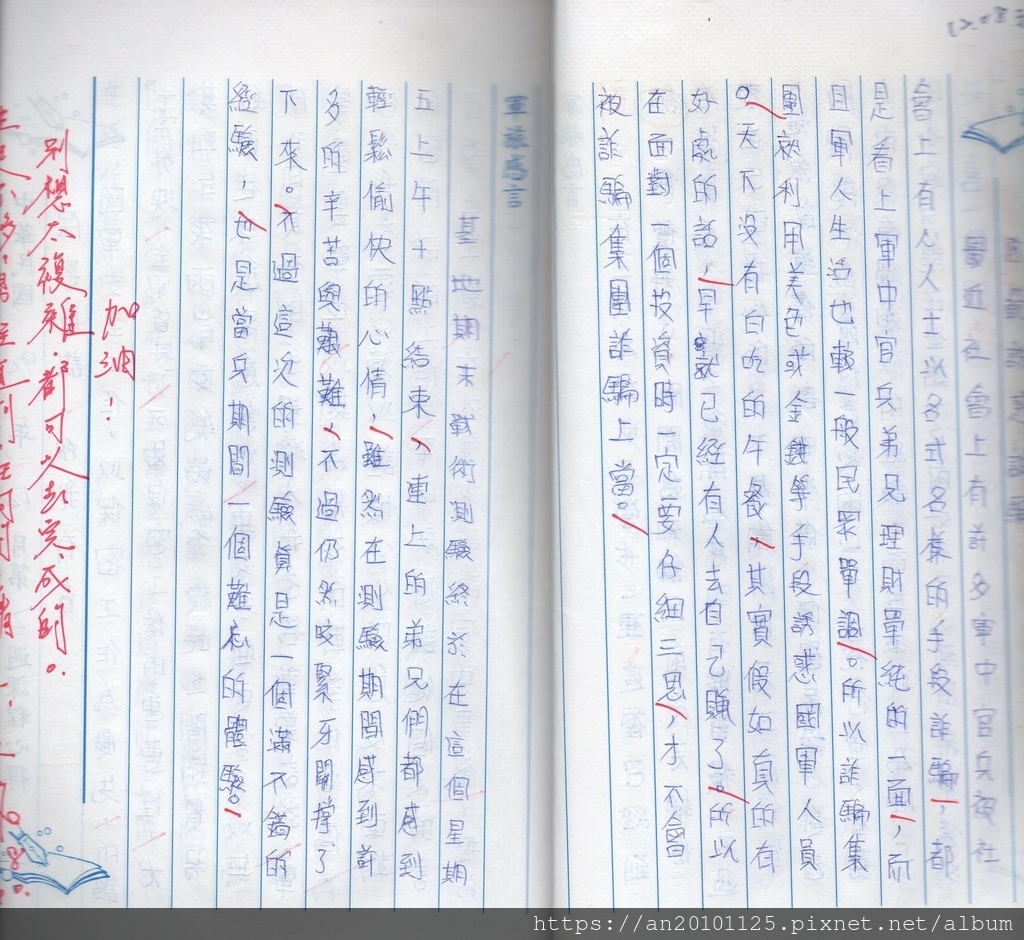 最近社會上有許多軍中官兵被社
會上有心人士以各式各樣的手段詐騙,都
是看上軍中官兵弟兄理財單純的一面,而
且軍人生活也較一般民眾單調。所以詐騙集
團就利用美色或金錢等手段誘惑國軍人員
。天下沒有白吃的午餐,其實假如真的有
好處的話,早就已經有人去自己賺了。所以
在面對一個投資時一定要仔細三思,才不會
被詐騙集團詐騙上當。
軍旅感言
基地期末戰術測驗終於在這個星期
五上午十點結束,連上的弟兄們都感到
輕鬆愉快的心情,雖然在測驗期間感到許
多的辛苦與艱難,不過仍然咬緊牙關撐了
下來。不過這次的測驗真是一個滿不錯的
經驗,也是當兵期間一個難忘的體驗。
加油!
別想太複雜.都可以去完成的。
https://an20101125.pixnet.net/album